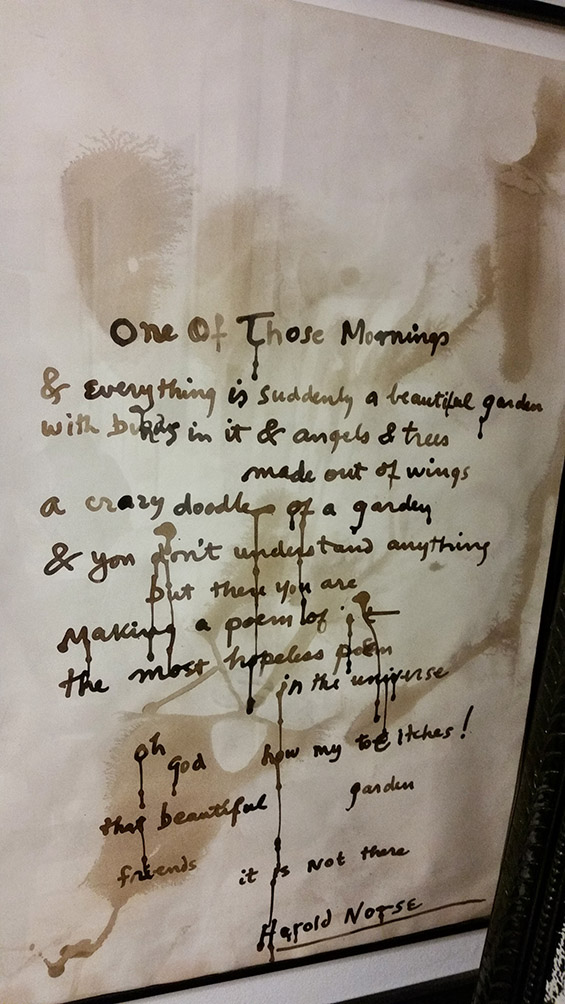 One Of Those Mornings
& everything is suddenly a beautiful garden
with birds in it & angels & trees
made out of wings
a crazy doodle of a garden
& you don't understand anything
but there you are
Making a poem of it
the most hopeless poem
in the universe
oh god how my toe itches!
that beautiful garden
friends it is Not there
Harold Norse